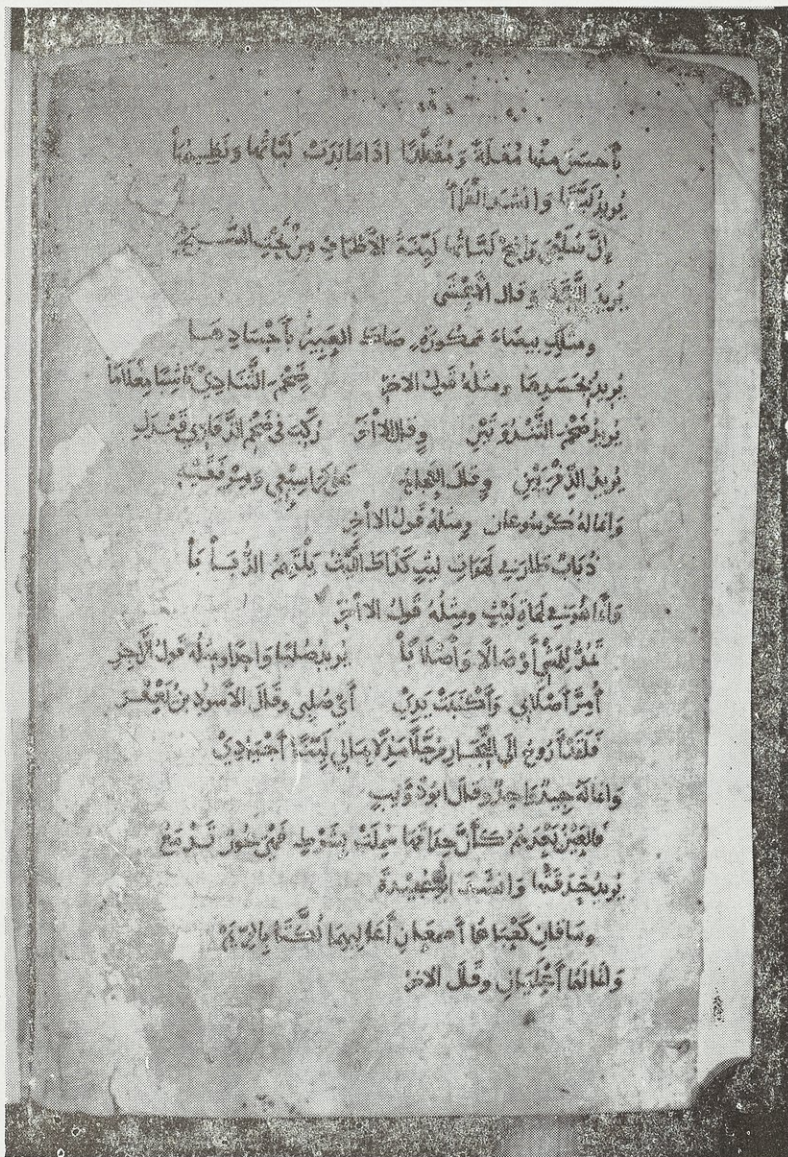 بأحسن منها مقلة ومقلدا اذا ما بدت لباتها ونظيمها
يريد لبتها وانشد الفراء
إن سليمى واضح لباتها لينة الأطراف من تحت
يريد اللبة وقال الأعشى
ومثلك بيضاء ممكورة صاك العبير بأجسادها
يريد بجسدها ومثله قول الاخر ضخم الثنادي ناشبا مغلابا
يريد ضخم الثندوتين وقال الاخر ركبت في ضخم الذفاري قندل
يريد الذفريين وقال العجاج على كراسيعي ومرفقيه
وانما له كرسوعان ومثله قول الاخر
ذباب طار في لهوات ليث كذاك الليث يلتهم الذبابا
وانما هو في لهاة ليث ومثله قول الاخر
تمد للمشي أوصالا وأصلابا يريد صلبا واحدا ومثله قول الآخر
أمر أصلابي وأكنبت يدي أي صلبي وقال الأسود بن يعفر
فلقد أروح الى التجار مرجلا مذلا بمالي لينا أجيادي
وانما له جيد واحد وقال ابو ذؤيب
فالعين بعدهم كأن حداقها سملت بشوك فهي عور تدمع
يريد حدقتها وانشد ابو عبيدة
وساقان كعباهما أصمعان أعاليهما لكتا بالريم
وقال الاخر